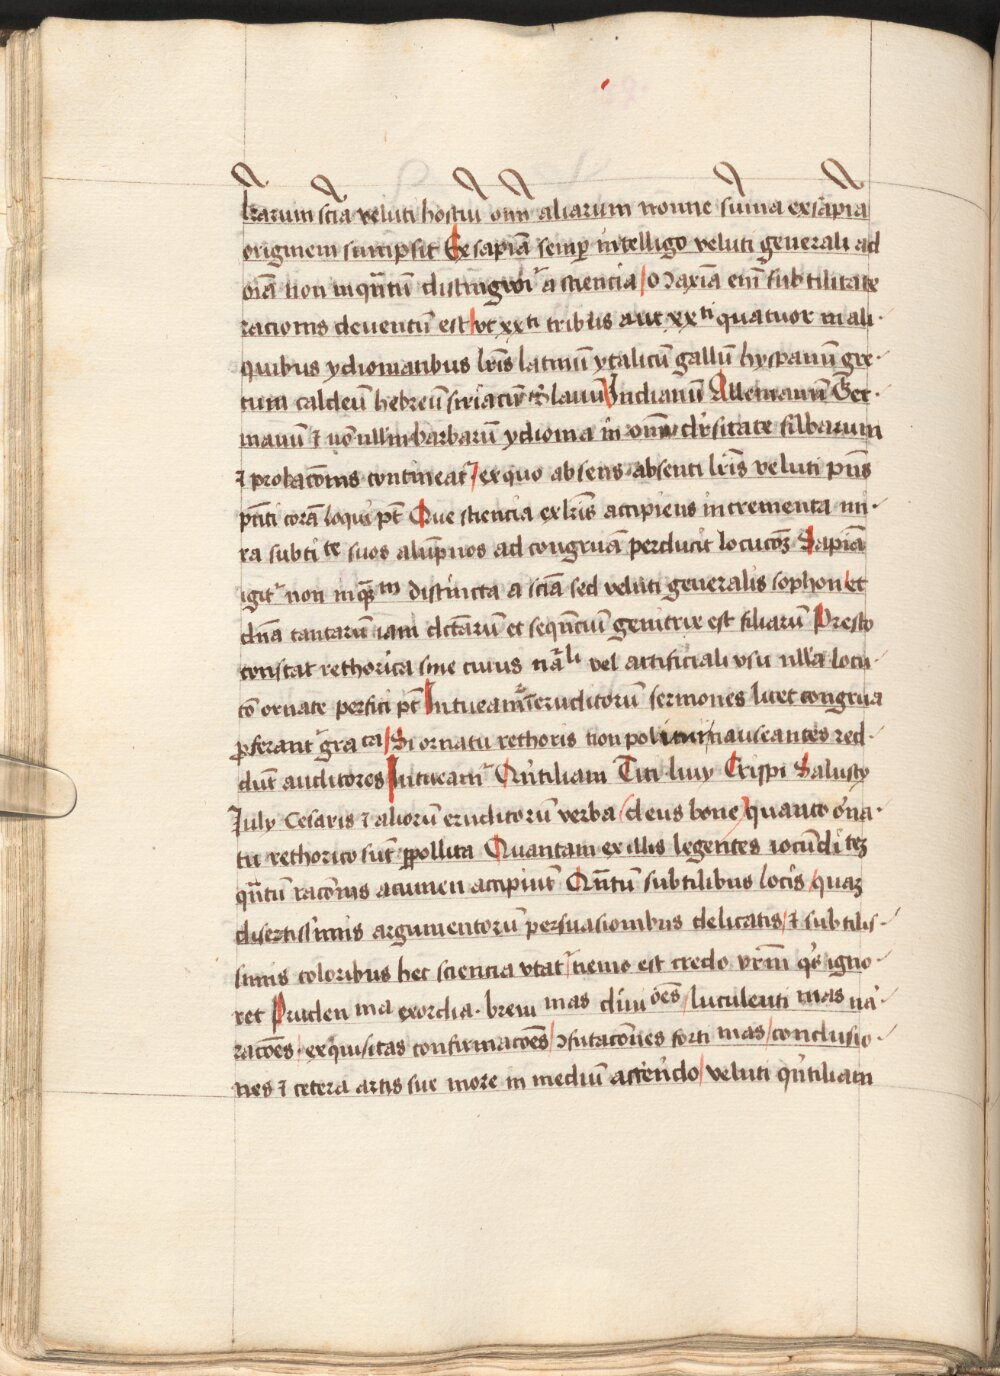 lr̄arum scīa veluti hostiū om̄ aliarum nonne sūma ex sāpia
originem sumpsit Et sapiā semꝑ intelligo veluti generali ad
oīā non inqn̄tū distingwi᷑ a sciencia / ꝯ axīa em̄ subtilitate
racionis deventū est / vt xxti tribus aut xxti quatuor in ali
quibus ydiomatibus lr̄is latinū ytalicū gallū hyspanū gre
cum caldeū hebreū siriacū Indianū Allemanū Ger
manū ⁊ no ullm barbarū ydioma in om̄ dr̓sitate sillbarum
⁊ probacōnis contineat᷑ / ex quo absens absenti lr̄is veluti p̄ns
p̄nti corā loqui pt̄ Que sciencia ex lr̄is accipiens incrementa mi
ra subti te suos alūpnos ad congruā perducit locucōꝫ Sapiā
igit᷑ non inqn̄tm distincta a sciā sed veluti generalis sophon et
dn̄a tantarū iam dc̄tarū et seqn̄ciū genitrix est filiarū Presto
constat rethorica sine cuius nāli vel artificiali vsu nulla locu
cō ornate perfici pt̄ Intueam᷑ eruditorū sermones licet congrua
ꝓferant᷑ gra ca / Si ornatu rethoris non poliuntur / nauseantes red
dūt auditores Intueam᷑ Qn̓tiliani Titi livy Crispi Salusty
July Cesaris ⁊ aliorū eruditorū verba / deus bone / quanto orna
tu rethorico sūt ꝑpollita Quantam ex illis legentes iocūdi teꝫ
qn̄tū racōnis acumen accipiunt Qn̄tū subtilibus locis / quaꝫ
disertissimis argumentorū persuasionibus delicatis / ⁊ subtilis
simis coloribus hec sciencia vtat᷑ / nemo est credo vr̄m qͥ igno
ret Pruden ma exordia brevi mas divi ōes / luculenti mas na
racōes exquisitas confirmacōes / ꝯfutacōnes forti mas / conclusio
nes ⁊ cetera artis sue more in mediū afferendo / veluti qn̓tiliani